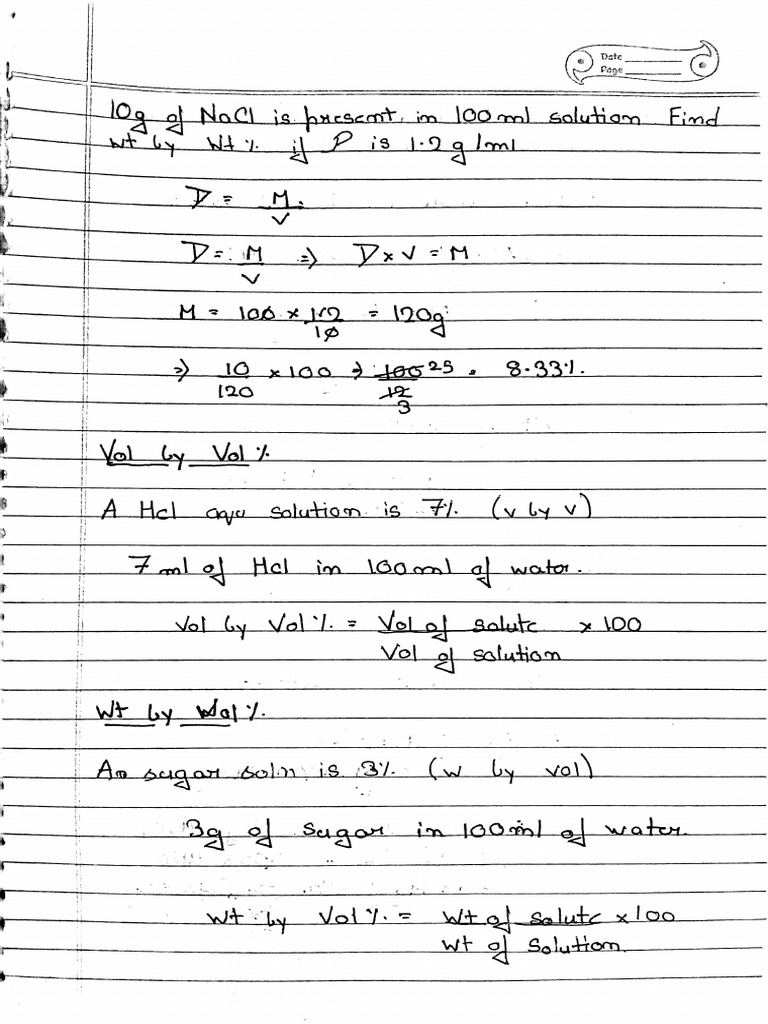 Date
Page
10g of NaCl is present in 100ml solution Find
wt by Wt % if D is 1.2 g/ml
D = M
V
D = M ⇒ D x V = M
V
M = 100 x 1.2 = 120g
10
⇒ 10 x 100 ⇒ 100 25 = 8.33%.
120 12
3
Vol by Vol %
A Hcl aqu solution is 7% (v by v)
7 ml of Hcl in 100ml of water.
Vol by Vol % = Vol of solute x 100
Vol of solution
Wt by Vol %.
A sugar soln is 3% (w by vol)
3g of sugar in 100ml of water.
Wt by Vol % = Wt of solute x 100
Wt of Solution.